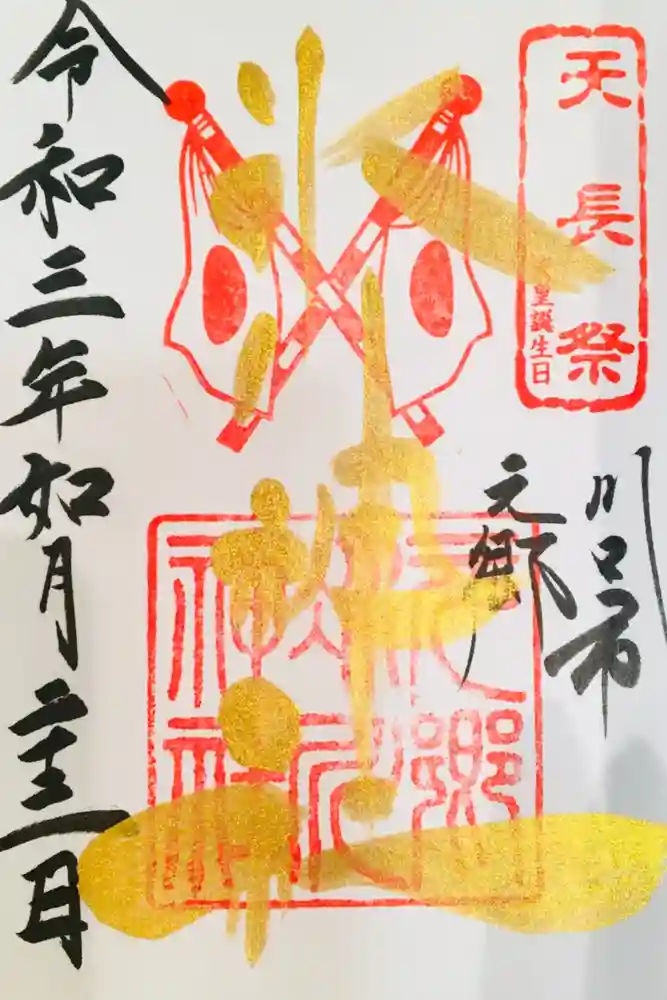 天長祭
天皇誕生日
川口市
元郷
元郷
氷川
神社
令和三年如月二十三日